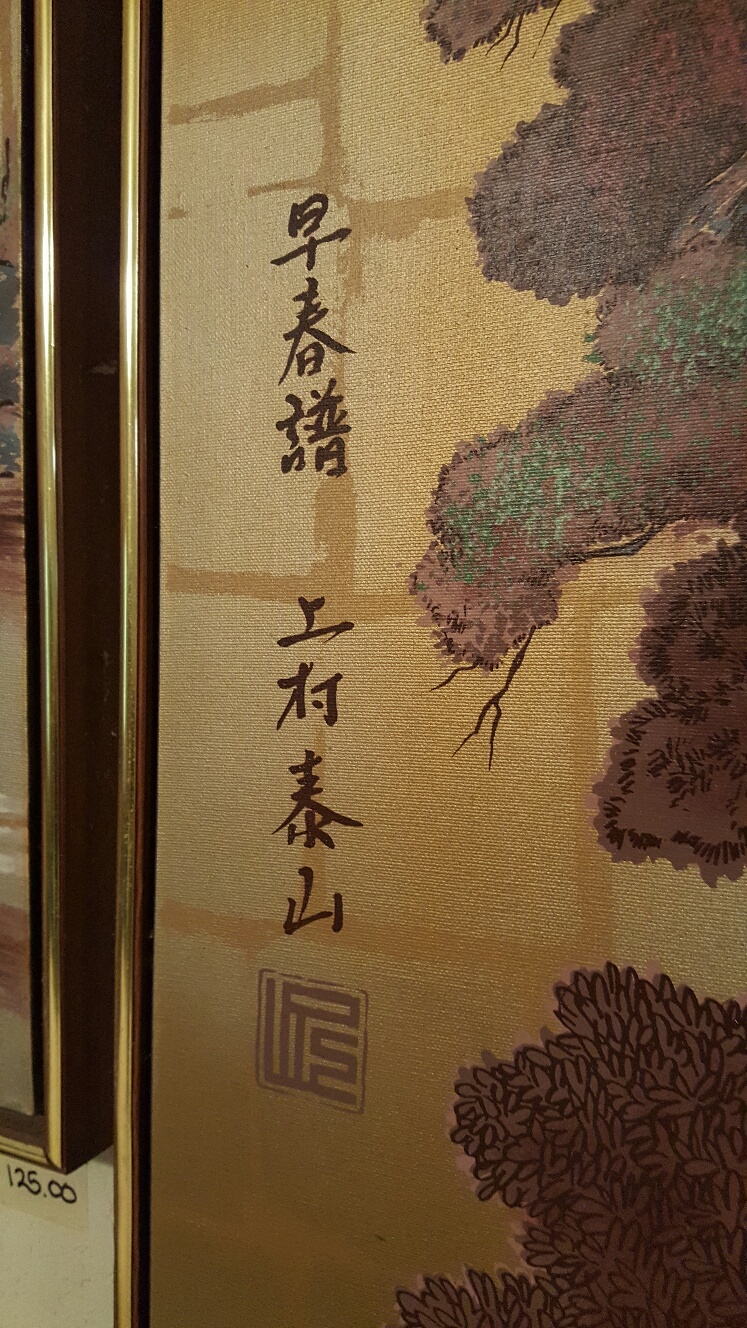 早春譜
上村泰山
125.00